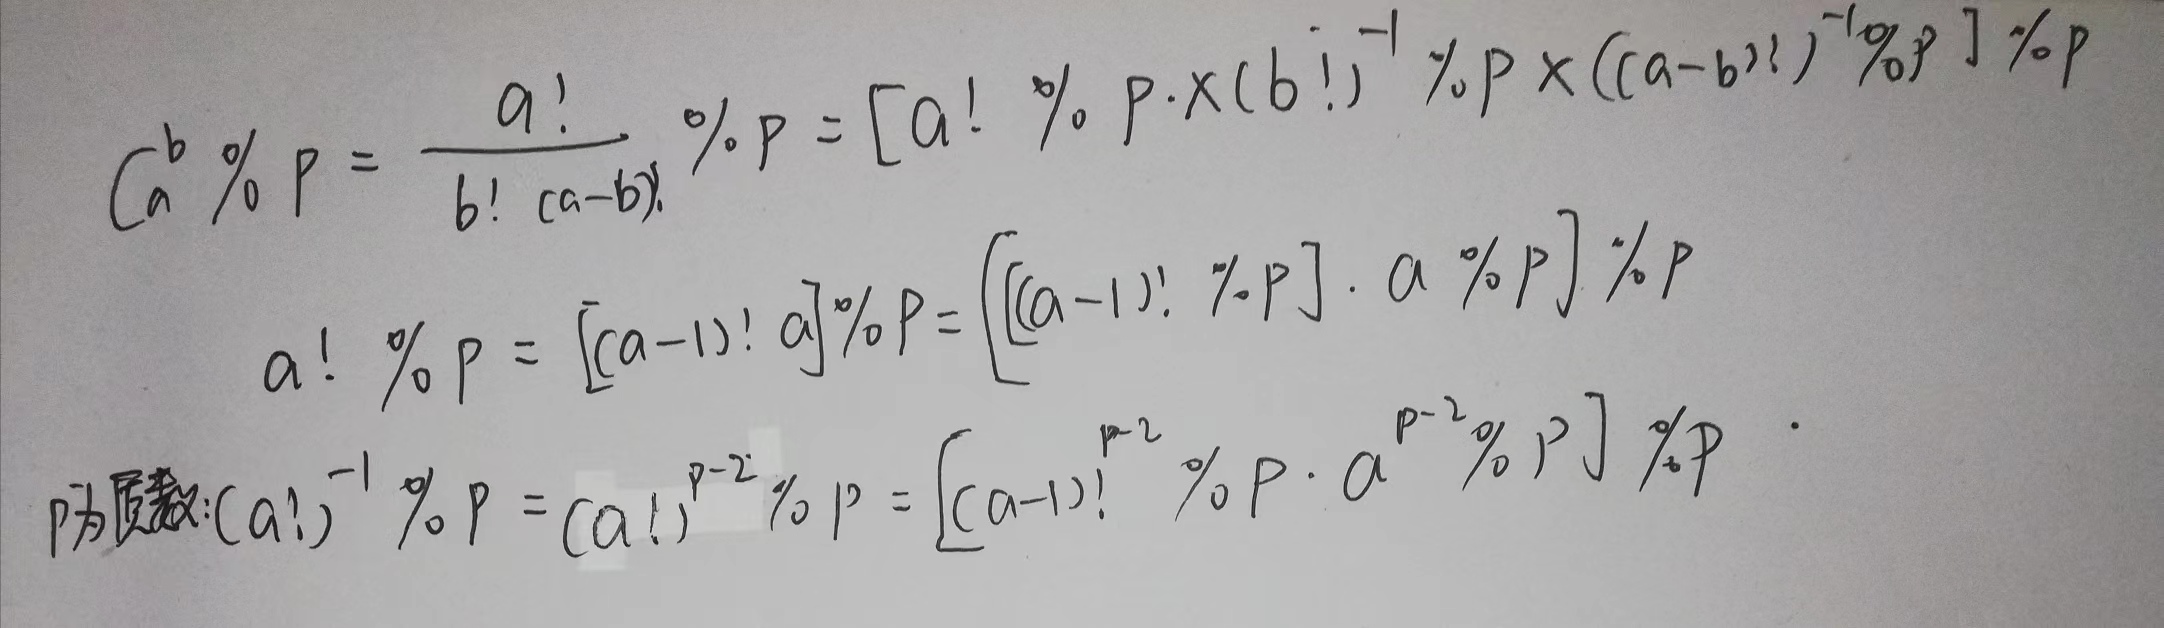 C_a^b % p = \frac{a!}{b! (a-b)!} % p = [a! % p · × (b!)^{-1} % p × ((a-b)!)^{-1} % p] % p
a! % p = [(a-1)! a] % p = [[(a-1)! % p] · a % p] % p
p为质数: (a!)^{-1} % p = (a!)^{p-2} % p = [(a-1)!^{p-2} % p · a^{p-2} % p] % p